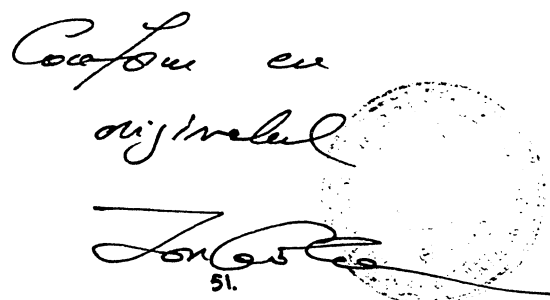 Conform cu
originalul
51.